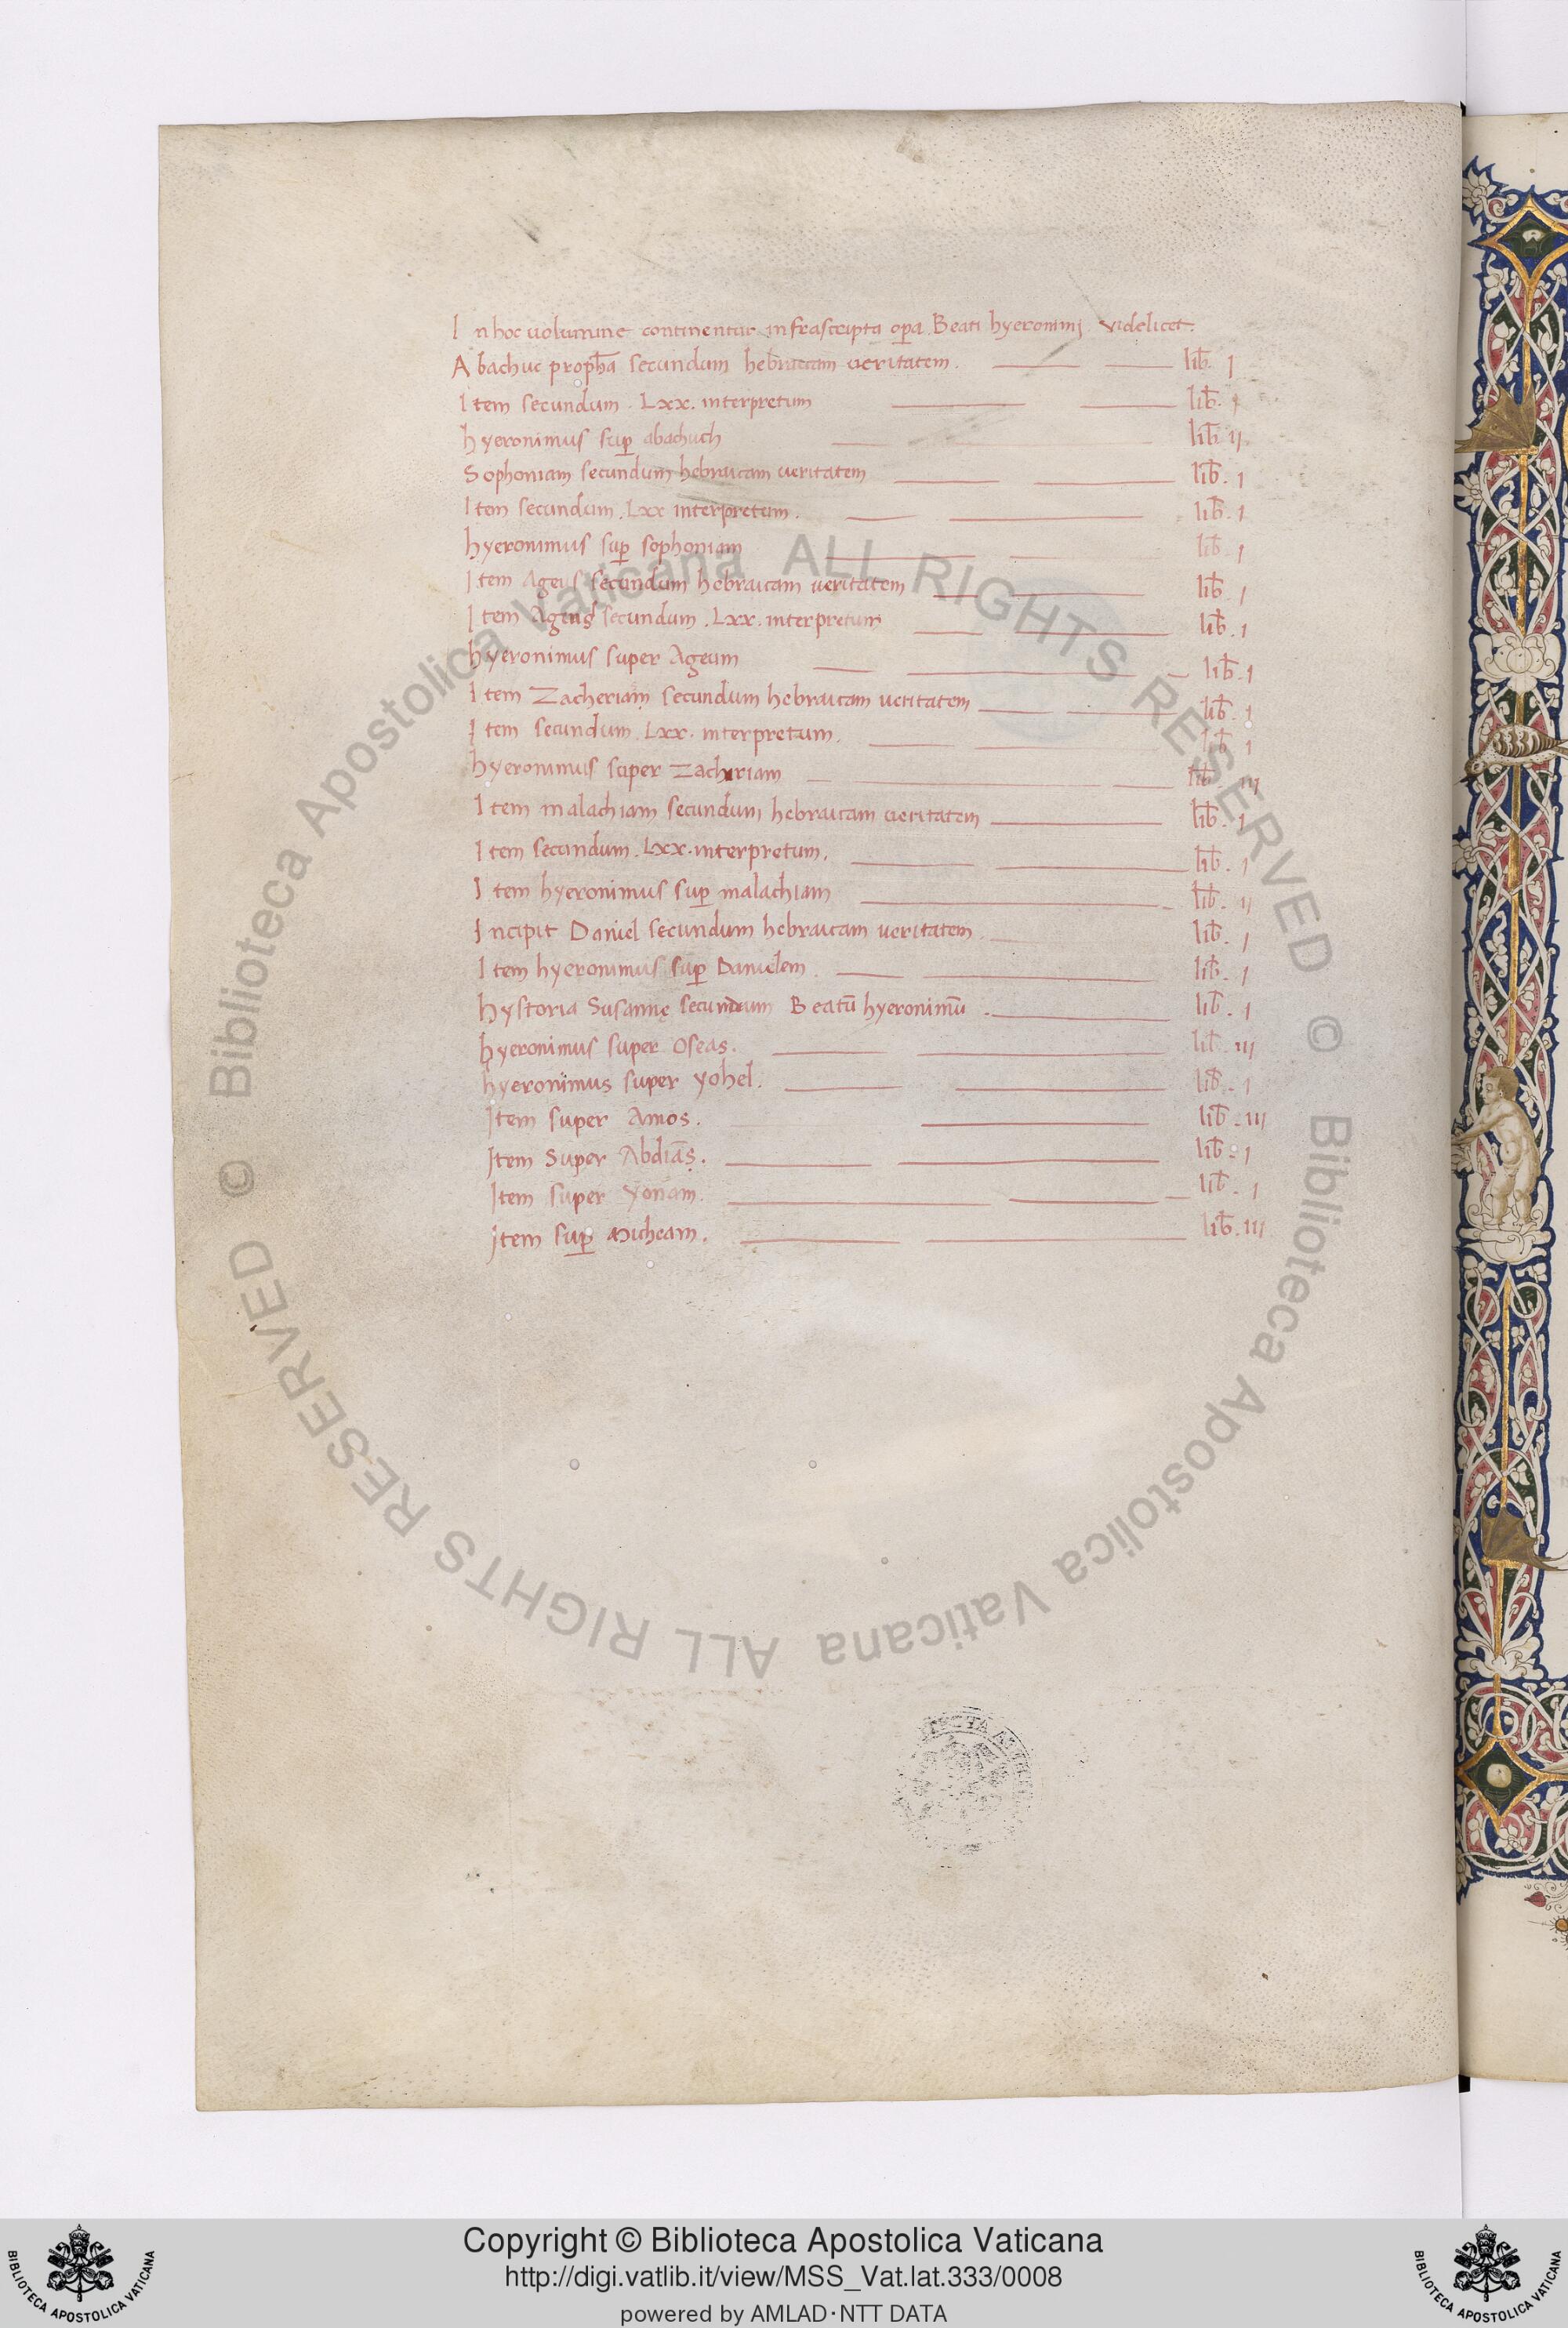 In hoc uolumine continentur infrascripta oꝑa Beati hyeronimj videlicet.
Abachuc proph̄a secundum hebraicam ueritatem. lib̄. I
Item secundum. Lxx. interpretum lib̄. I
hyeronimus suꝑ abachuch lib̄. IJ
Sophoniam secundum hebraicam ueritatem lib̄. I
Item secundum. Lxx interpretum. lib̄. I
hyeronimus suꝑ sophoniam lib̄. I
Item Ageus secundum hebraicam ueritatem lib̄. I
Item Ageus secundum. Lxx. interpretum lib̄. I
hyeronimus super Ageum lib̄. I
Item Zacheriam secundum hebraicam ueritatem lib̄. I
Item secundum. Lxx. interpretum. lib̄. I
hyeronimus super Zachariam lib̄. IIJ
Item malachiam secundum hebraicam ueritatem lib̄. I
Item secundum. Lxx. interpretum. lib̄. I
Item hyeronimus suꝑ malachiam lib̄. IJ
Incipit Daniel secundum hebraicam ueritatem. lib̄. I
Item hyeronimus suꝑ Danielem. lib̄. I
hystoria Susannę secundum Beatū hyeronimū. lib̄. I
hyeronimus super Oseas. lib̄. IIJ
hyeronimus super yohel. lib̄. I
Item super Amos. lib̄. IIJ
Item Super Abdiās. lib̄. I
Item super Yonam. lib̄. I
Item suꝑ Micheam. lib̄. IIJ
© Biblioteca Apostolica Vaticana ALL RIGHTS RESERVED
© Biblioteca Apostolica Vaticana ALL RIGHTS RESERVED
BIBLIOTECA APOSTOLICA VATICANA
Copyright © Biblioteca Apostolica Vaticana
http://digi.vatlib.it/view/MSS_Vat.lat.333/0008
powered by AMLAD·NTT DATA
BIBLIOTECA APOSTOLICA VATICANA